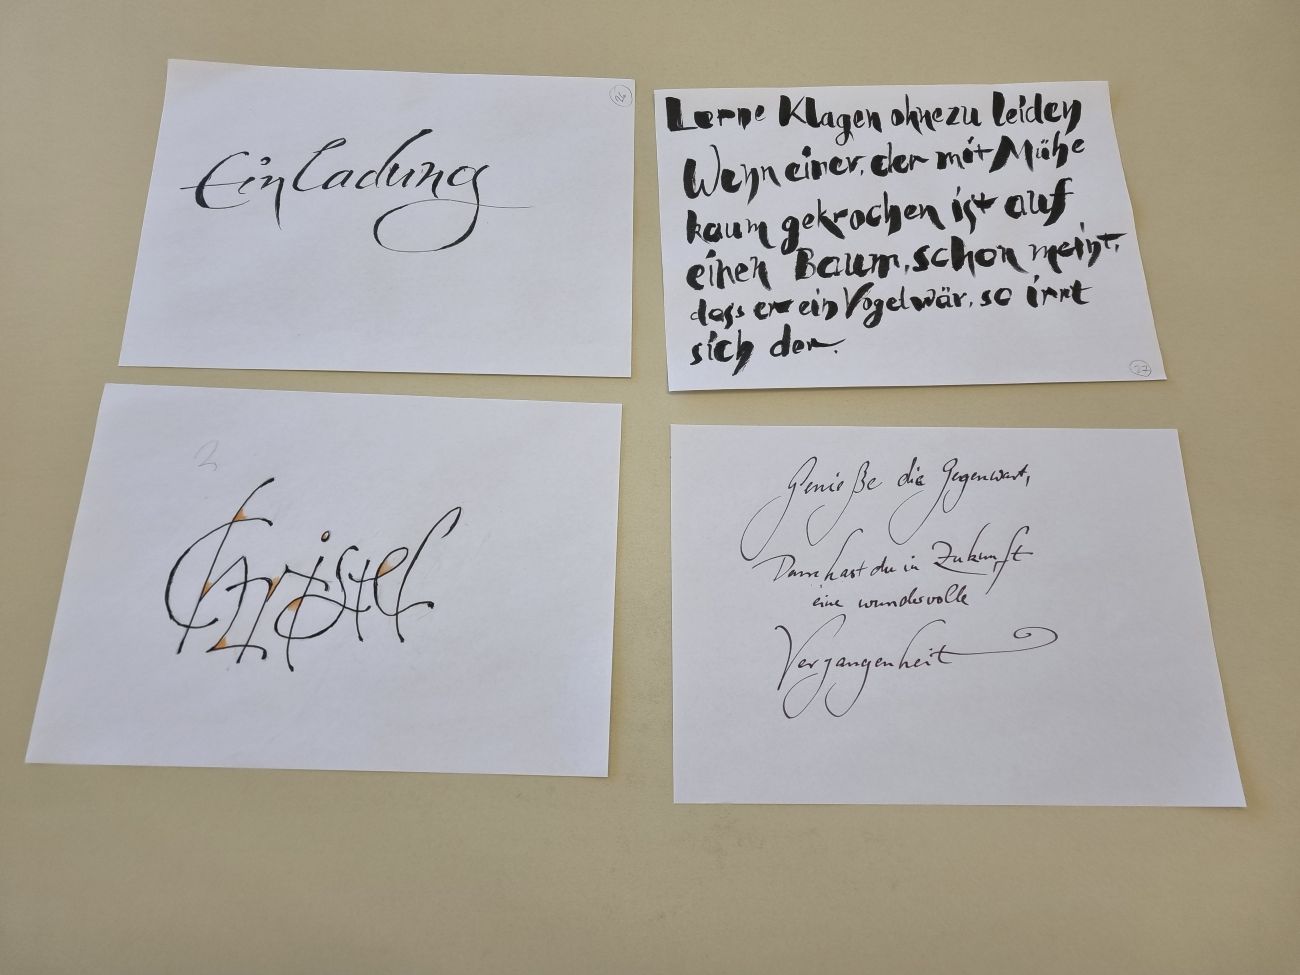 Einladung
26
Lerne Klagen ohne zu leiden
Wenn einer, der mit Mühe
kaum gekrochen ist auf
einen Baum, schon meint,
dass er ein Vogel wär, so irrt
sich der.
27
2
Christel
Genieße die Gegenwart,
Dann hast du in Zukunft
eine wundervolle
Vergangenheit